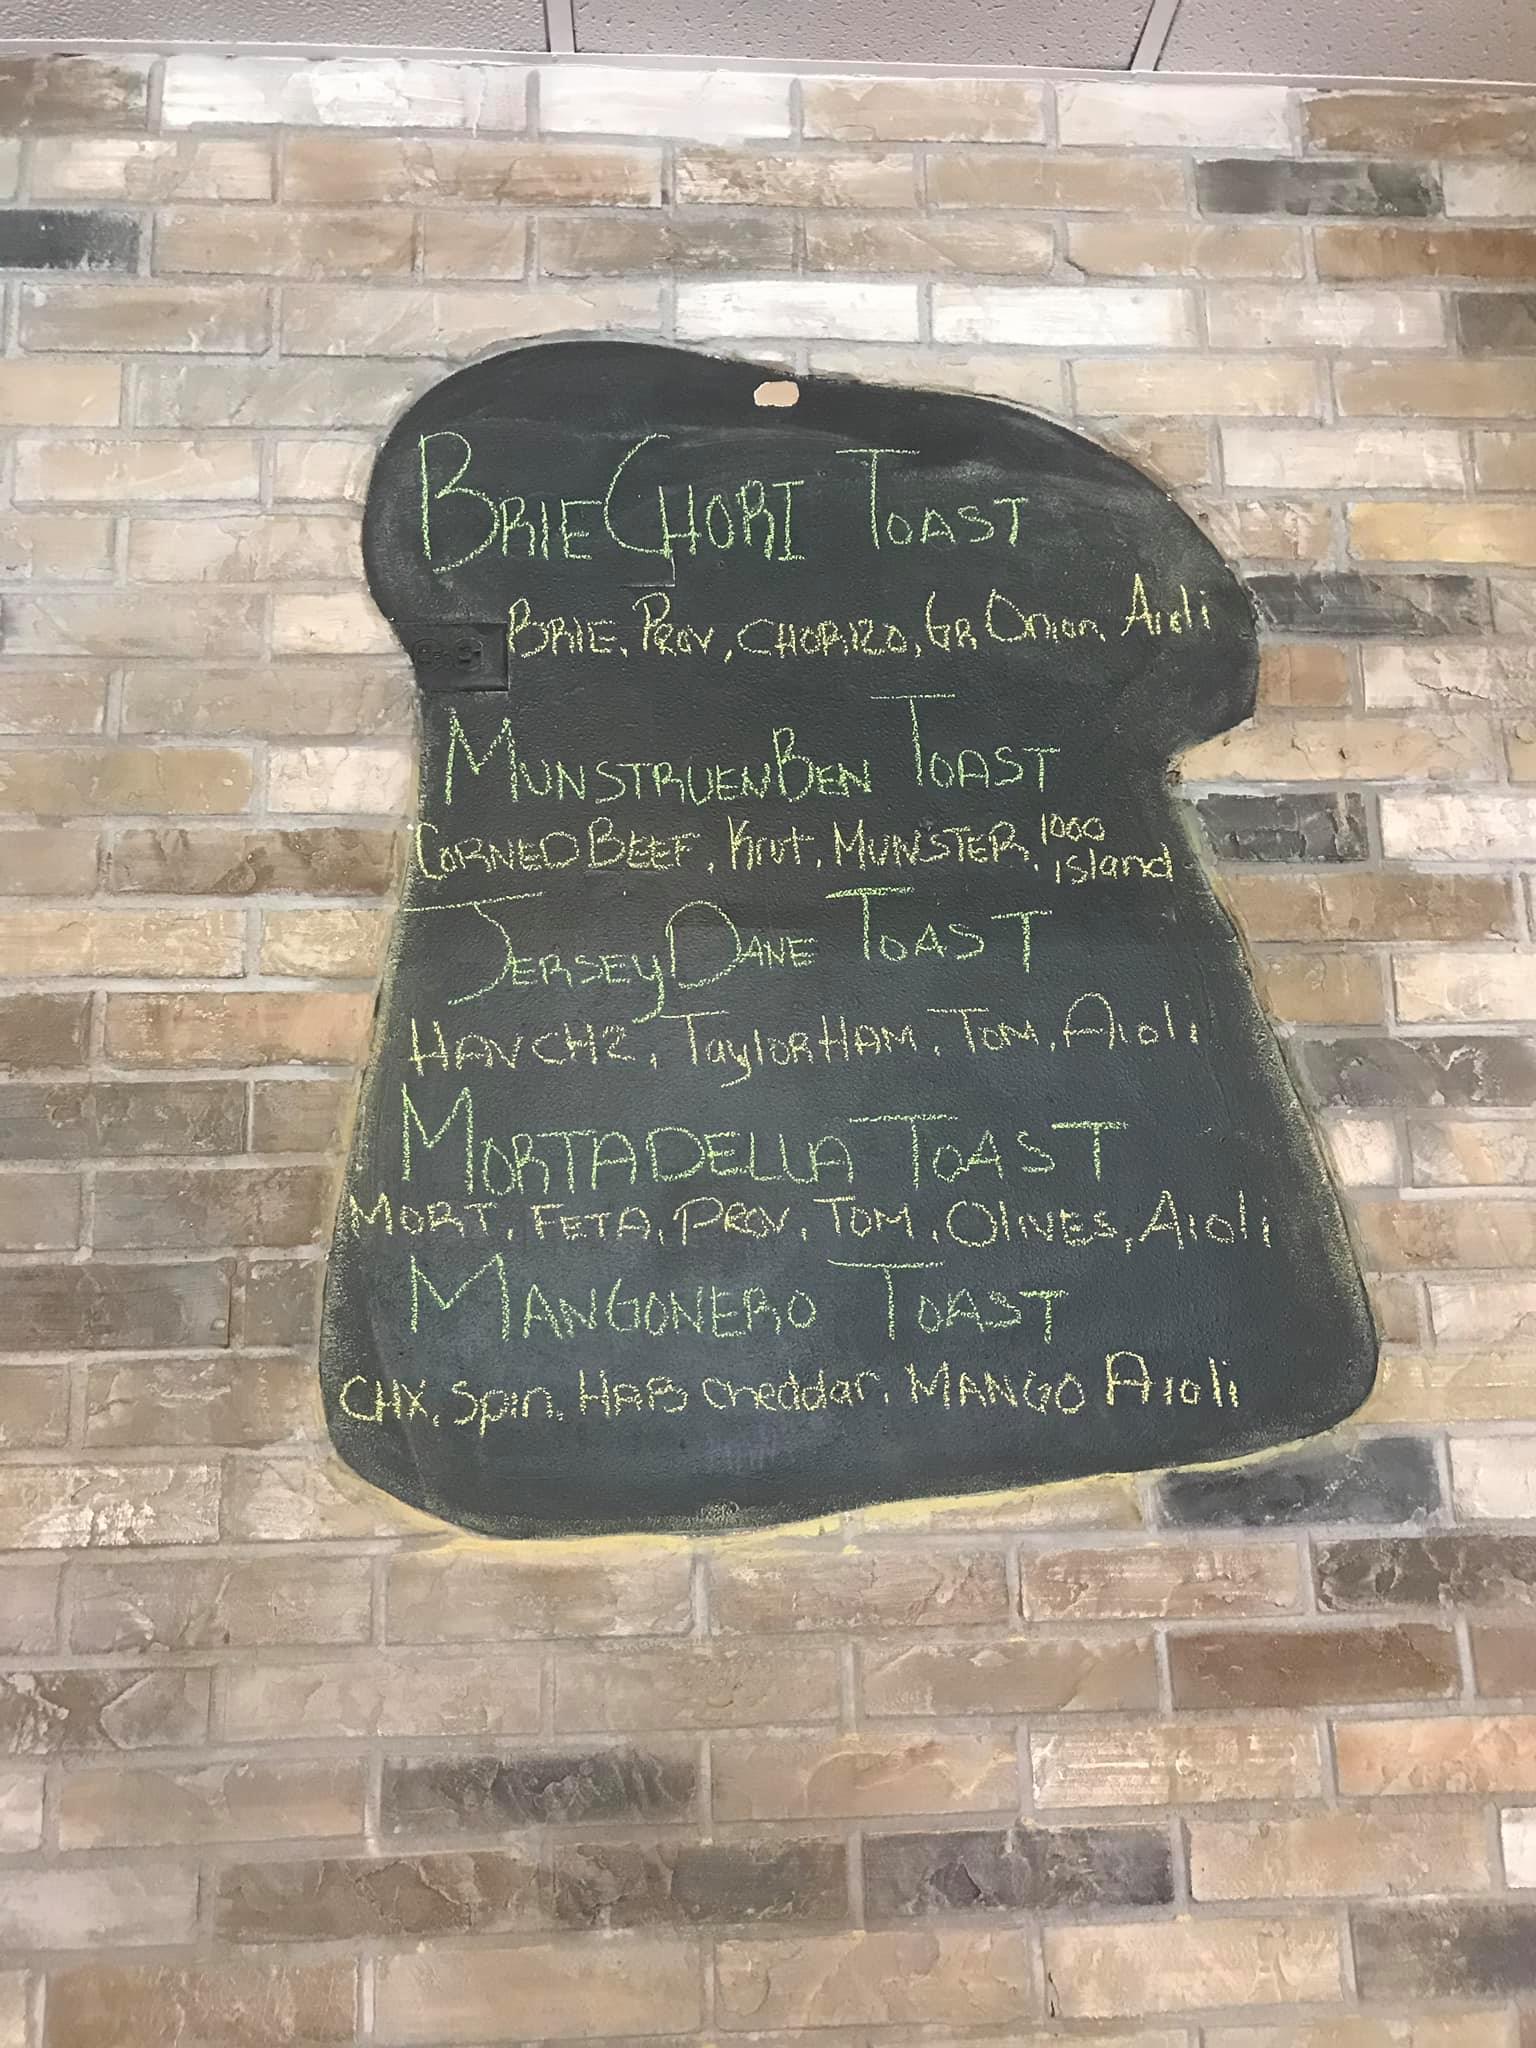 BrieChori Toast
Brie, Prov, Chorizo, Gr Onion Aioli
MunstruenBen Toast
Corned Beef, Krut, Munster, 1000 island
JerseyDane Toast
HAVCHZ, Taylor Ham, Tom, Aioli
Mortadella Toast
Mort, Feta, Prov, Tom, Olives, Aioli
Mangonero Toast
CHX, Spin, HAB cheddar, MANGO Aioli